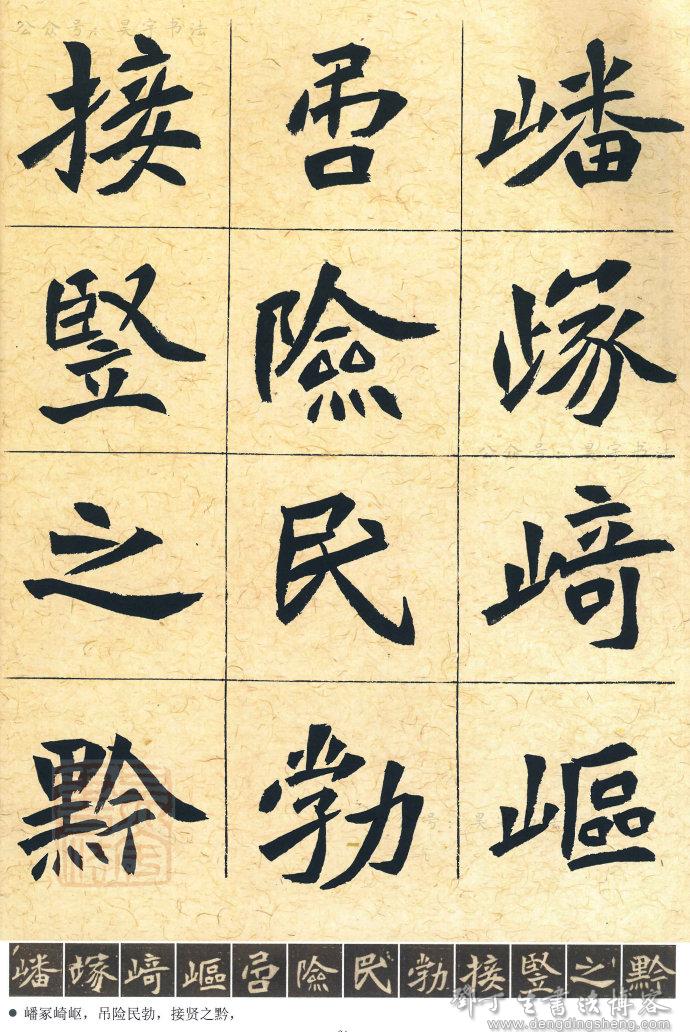 公众号：昊宇书法
嶓冢崎嶇
吊險民勃
接竪之黔
公众号：昊宇书法
嶓冢崎嶇吊險民勃接竪之黔
● 嶓冢崎岖，吊险民勃，接贤之黔，
邓丁生书法博客
dengdingsheng.com